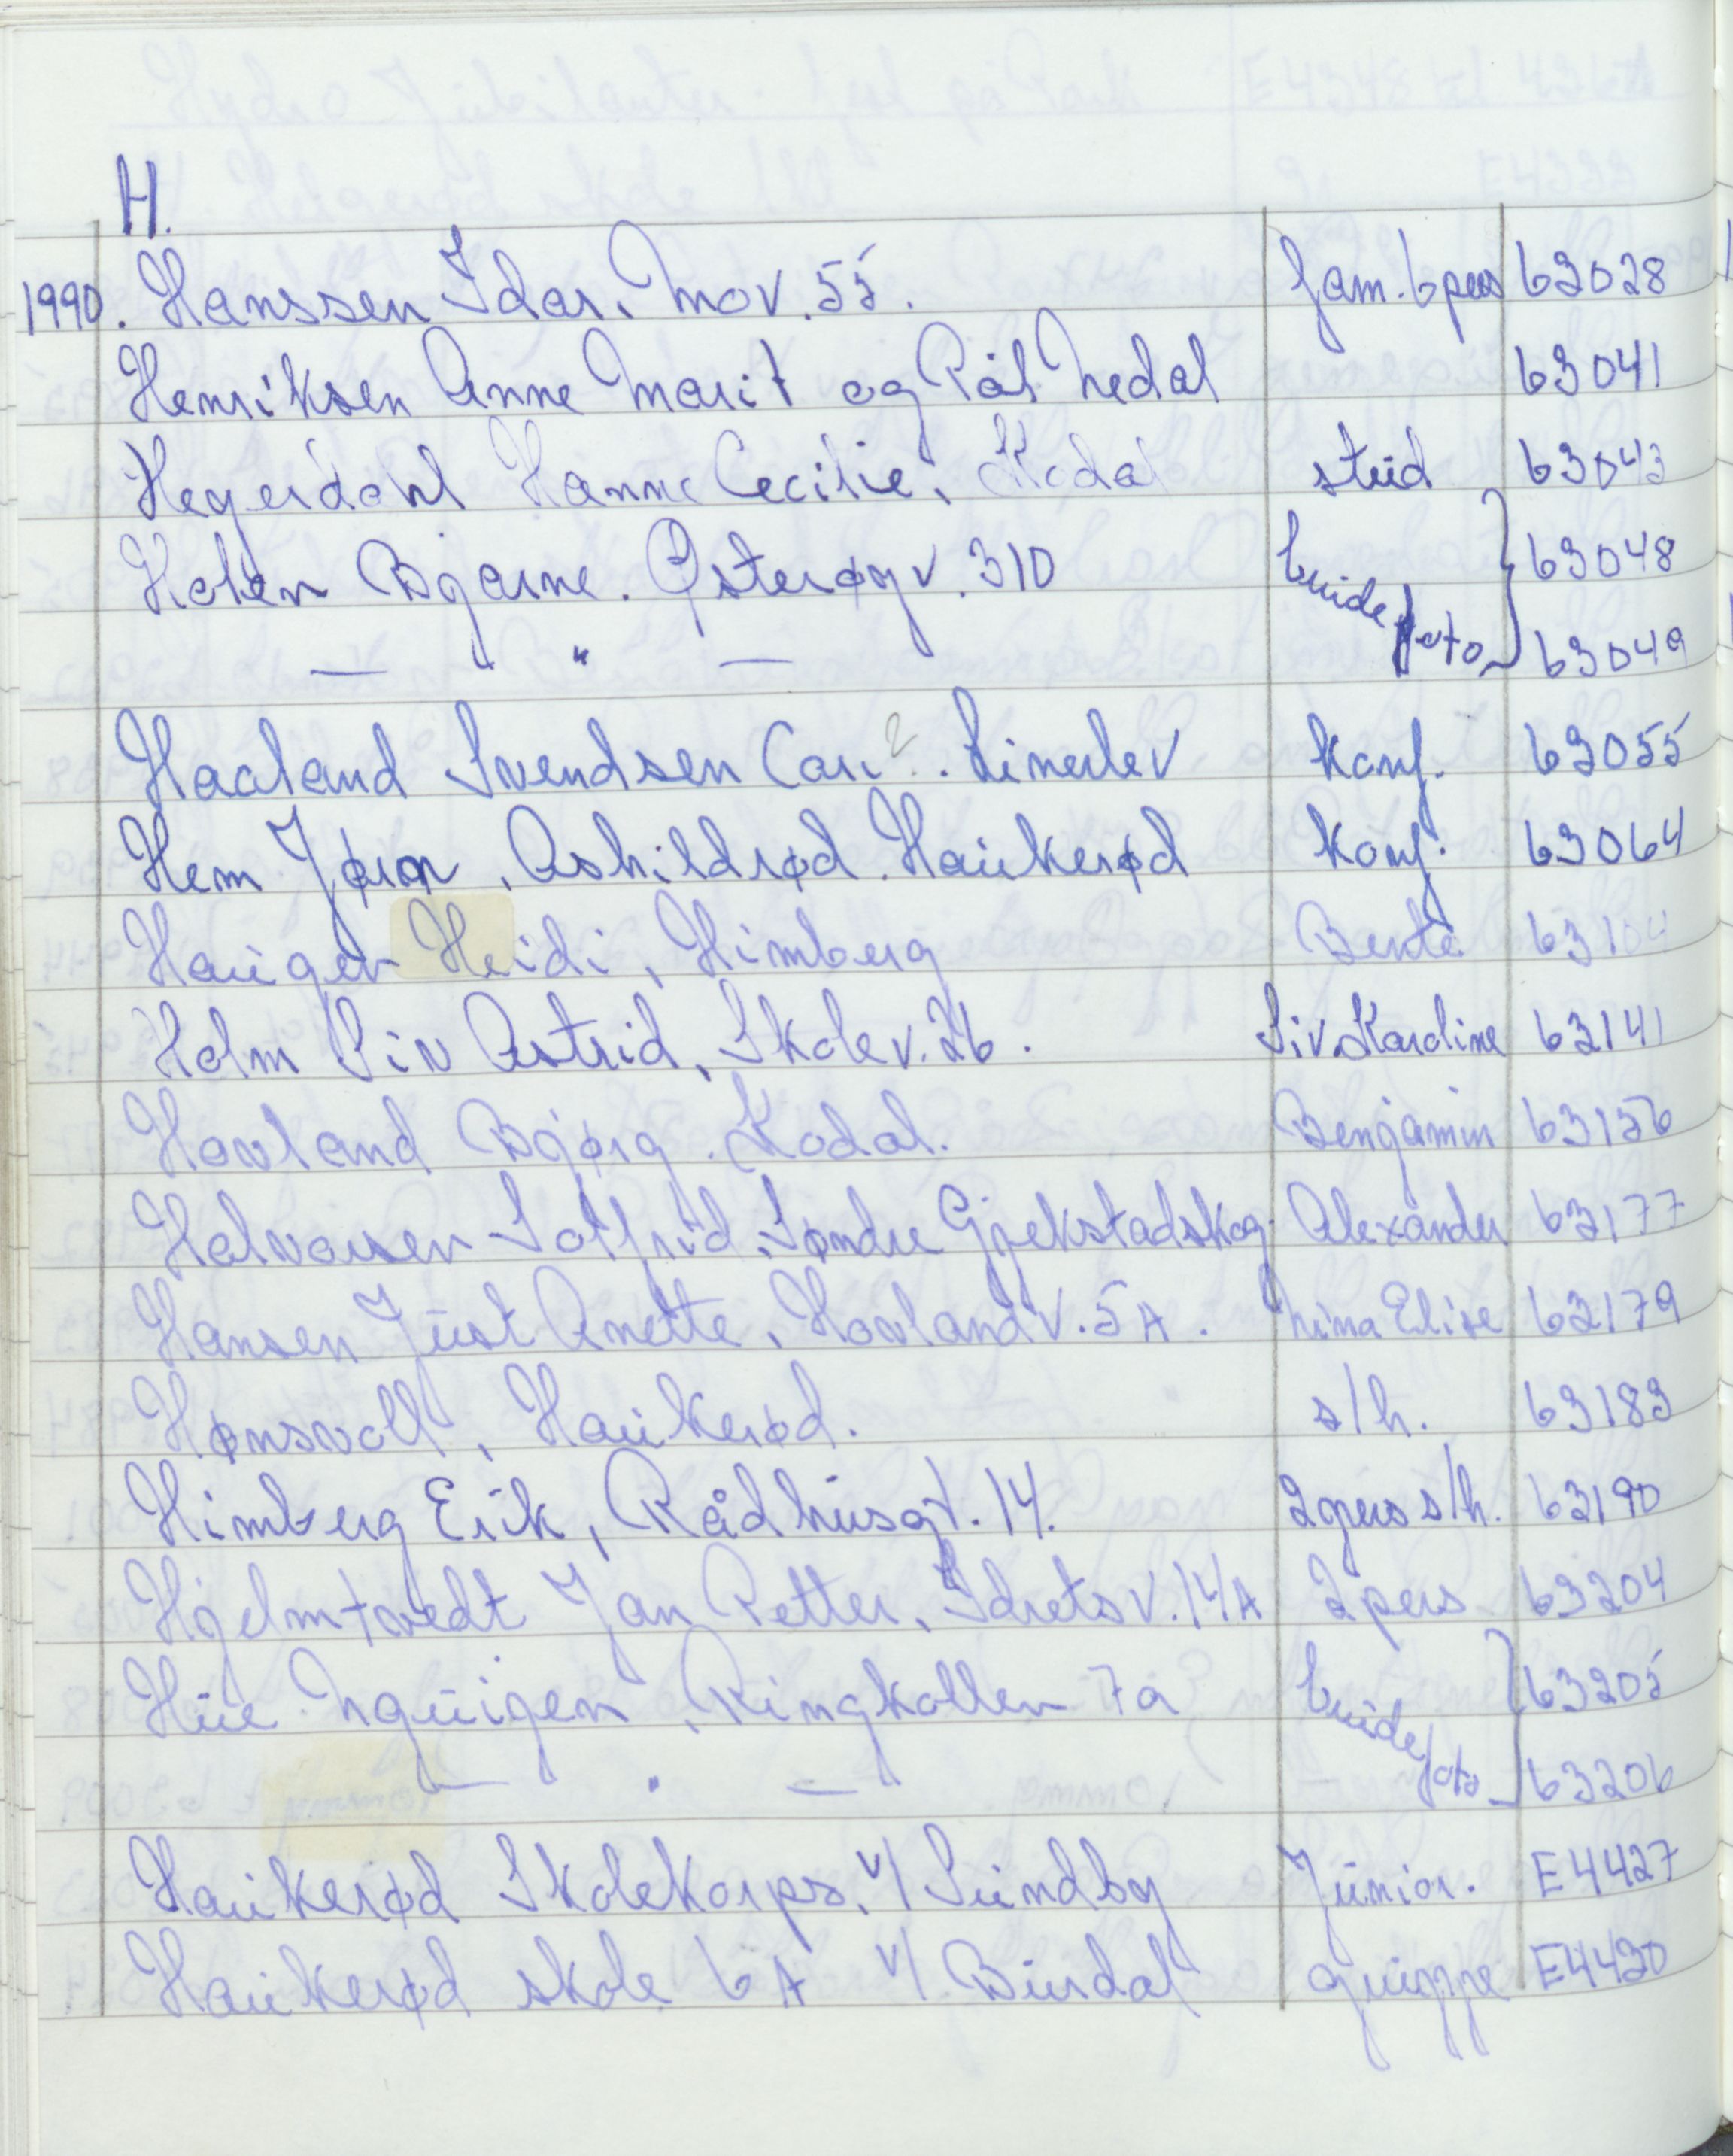 H.
1990. Hanssen Idar. Mov. 55. fam. 6 pers 63028
Henriksen Anne Marit og Pål Nedal 63041
Hegerdahl Hanne Cecilie, Kodal stud 63043
Holen Bjarne. Østerøyv. 310 brudefoto 63048
— " — 63049
Haaland Svendsen Cari ? . Linerlev konf. 63055
Hem Jørn, Askildrød. Haukerød konf. 63064
Haugen Heidi, Himberg Bente 63104
Holm Siv Astrid, Skolev. 26. Siv. Karoline 63141
Hovland Bjørg. Kodal. Benjamin 63156
Halvorsen Solfrid, Søndre Gjekstadskog Alexander 63177
Hansen Just Anette, Hovland v. 5A. Nina Elise 63179
Hønsvall, Haukerød. s/h. 63183
Himberg Erik, Rådhusgt. 14. 2 pers s/h. 63190
Hjelmtvedt Jan Petter, Idretsv. 14A 2 pers 63204
Hue Nguigen, Ringkollen 7a brudefoto 63205
— " — 63206
Haukerød Skolekorps. v/ Sundby Junior. E4427
Haukerød skole 6A v/ Burdal gruppe E4430